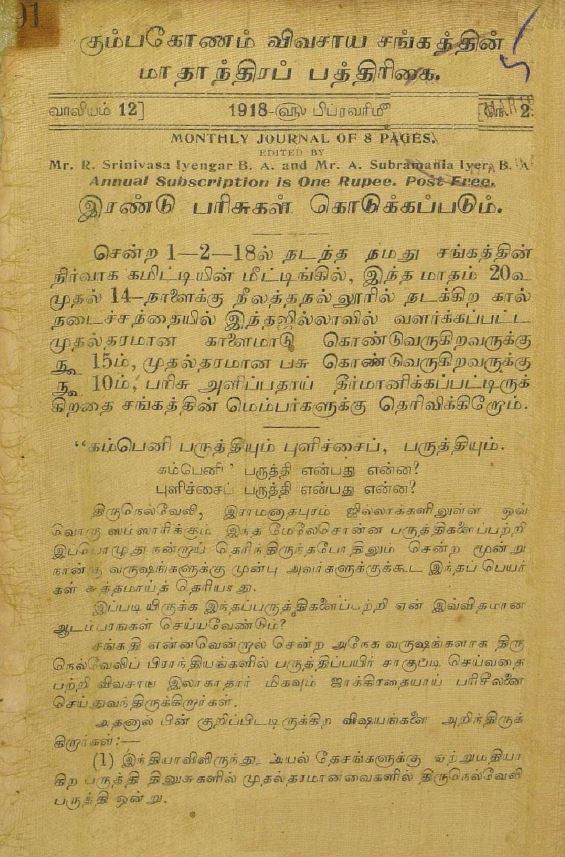 01
கும்பகோணம் விவசாய சங்கத்தின்
மாதாந்திரப் பத்திரிகை.
வால்யம் 12] 1918-ஹு பிப்ரவரிமீ 2
MONTHLY JOURNAL OF 8 PAGES.
EDITED BY
Mr. R. Srinivasa Iyengar B. A. and Mr. A. Subramania Iyer, B. A
Annual Subscription is One Rupee. Post Free.
இரண்டு பரிசுகள் கொடுக்கப்படும்.
சென்ற 1—2—18ல் நடந்த நமது சங்கத்தின்
நிர்வாக கமிட்டியின் மீட்டிங்கில், இந்த மாதம் 20௳
முதல் 14-நாளைக்கு நீலத்தநல்லூரில் நடக்கிற கால்
நடைச்சந்தையில் இந்தஜில்லாவில் வளர்க்கப்பட்ட
முதல்தரமான காளைமாடு கொண்டுவருகிறவருக்கு
ரூ 15ம், முதல்தரமான பசு கொண்டுவருகிறவருக்கு
ரூ 10ம், பரிசு அளிப்பதாய் தீர்மானிக்கப்பட்டிருக்
கிறதை சங்கத்தின் மெம்பர்களுக்கு தெரிவிக்கிறோம்.
“கம்பெனி பருத்தியும் புளிச்சைப், பருத்தியும்.
கம்பெனி பருத்தி என்பது என்ன?
புளிச்சைப் பருத்தி என்பது என்ன?
திருநெல்வேலி, இராமனாதபுரம் ஜில்லாக்களிலுள்ள ஒவ்
வொரு ஸம்ஸாரிக்கும் இந்த மேலேசொன்ன பருத்திகளைப்பற்றி
இப்பொழுது நன்றாய் தெரிந்திருந்தபோதிலும் சென்ற மூன்று
நான்கு வருஷங்களுக்கு முன்பு அவர்களுக்குக்கூட இந்தப் பெயர்
கள் சுத்தமாய்த் தெரியாது.
இப்படியிருக்க இந்தப்பருத்திகளைப்பற்றி ஏன் இவ்விதமான
ஆடம்பரங்கள் செய்யவேண்டும்?
சங்கதி என்னவென்றால் சென்ற அநேக வருஷங்களாக திரு
நெல்வேலிப் பிராந்தியங்களில் பருத்திப்பயிர் சாகுபடி செய்வதை
பற்றி விவசாய இலாகாதார் மிகவும் ஜாக்கிரதையாய் பரிசீலனை
செய்துவந்திருக்கிறார்கள்.
அதனால் பின் குறிப்பிட்டிருக்கிற விஷயங்களை அறிந்திருக்
கிறார்கள்:—
(1) இந்தியாவிலிருந்து அயல் தேசங்களுக்கு ஏற்றுமதியா
கிற பருத்தி தினுசுகளில் முதல்தரமானவைகளில் திருநெல்வேலி
பருத்தி ஒன்று.